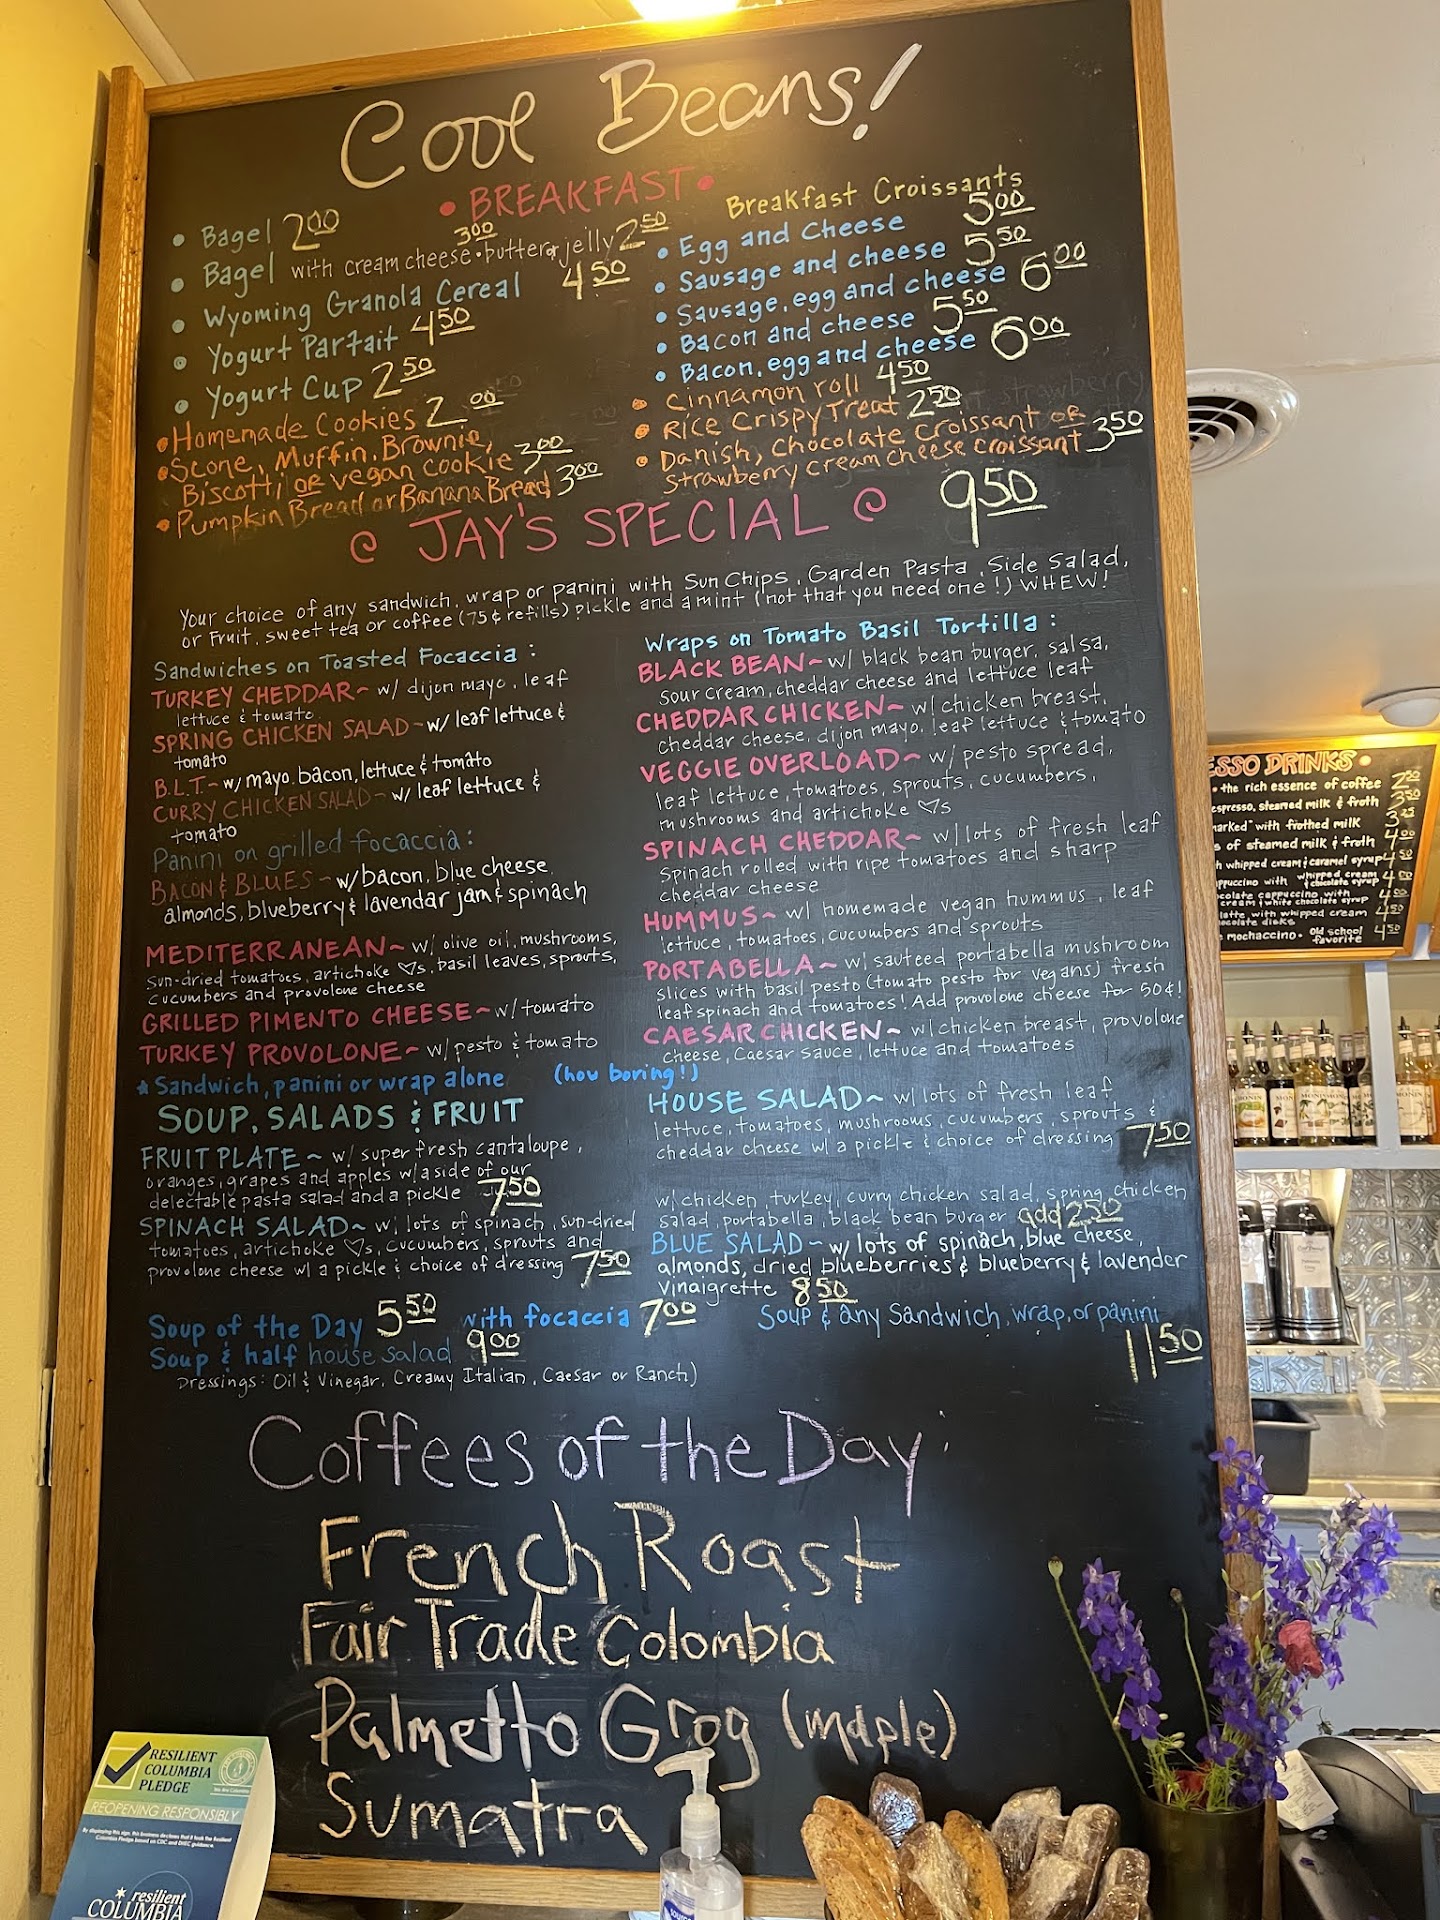 Cool Beans!
• BREAKFAST •
• Bagel 2.00
• Bagel with cream cheese 3.00 • butter or jelly 2.50
• Wyoming Granola Cereal 4.50
• Yogurt Parfait 4.50
• Yogurt Cup 2.50
• Homemade Cookies 2.00
• Scone, Muffin, Brownie,
Biscotti or vegan cookie 3.00
• Pumpkin Bread or Banana Bread 3.00
Breakfast Croissants
• Egg and Cheese 5.00
• Sausage and cheese 5.50
• Sausage, egg and cheese 6.00
• Bacon and cheese 5.50
• Bacon, egg and cheese 6.00
• Cinnamon roll 4.50
• Rice Crispy Treat 2.50
• Danish, Chocolate Croissant or
Strawberry cream cheese croissant 3.50
@ JAY'S SPECIAL @ 9.50
Your choice of any sandwich, wrap or panini with Sun Chips, Garden Pasta, Side Salad,
or Fruit, sweet tea or coffee (75¢ refills) pickle and a mint (not that you need one!) WHEW!
Sandwiches on Toasted Focaccia:
TURKEY CHEDDAR~ w/ dijon mayo, leaf
lettuce & tomato
SPRING CHICKEN SALAD~ w/ leaf lettuce &
tomato
B.L.T.~ w/ mayo, bacon, lettuce & tomato
CURRY CHICKEN SALAD~ w/ leaf lettuce &
tomato
Panini on grilled focaccia:
BACON & BLUES~ w/ bacon, blue cheese,
almonds, blueberry & lavendar jam & spinach
MEDITERRANEAN~ w/ olive oil, mushrooms,
sun-dried tomatoes, artichoke ♡s, basil leaves, sprouts,
cucumbers and provolone cheese
GRILLED PIMENTO CHEESE~ w/ tomato
TURKEY PROVOLONE~ w/ pesto & tomato
★ Sandwich, panini or wrap alone (how boring!)
Wraps on Tomato Basil Tortilla:
BLACK BEAN~ w/ black bean burger, salsa,
sour cream, cheddar cheese and lettuce leaf
CHEDDAR CHICKEN~ w/ chicken breast,
cheddar cheese, dijon mayo, leaf lettuce & tomato
VEGGIE OVERLOAD~ w/ pesto spread,
leaf lettuce, tomatoes, sprouts, cucumbers,
mushrooms and artichoke ♡s
SPINACH CHEDDAR~ w/ lots of fresh leaf
spinach rolled with ripe tomatoes and sharp
cheddar cheese
HUMMUS~ w/ homemade vegan hummus, leaf
lettuce, tomatoes, cucumbers and sprouts
PORTABELLA~ w/ sauteed portabella mushroom
slices with basil pesto (tomato pesto for vegans) fresh
leaf spinach and tomatoes! Add provolone cheese for 50¢!
CAESAR CHICKEN~ w/ chicken breast, provolone
cheese, Caesar sauce, lettuce and tomatoes
SOUP, SALADS & FRUIT
FRUIT PLATE~ w/ super fresh cantaloupe,
oranges, grapes and apples w/ a side of our
delectable pasta salad and a pickle 7.50
SPINACH SALAD~ w/ lots of spinach, sun-dried
tomatoes, artichoke ♡s, cucumbers, sprouts and
provolone cheese w/ a pickle & choice of dressing 7.50
HOUSE SALAD~ w/ lots of fresh leaf
lettuce, tomatoes, mushrooms, cucumbers, sprouts &
cheddar cheese w/ a pickle & choice of dressing 7.50
w/ chicken, turkey, curry chicken salad, spring chicken
salad, portabella, black bean burger add 2.50
BLUE SALAD~ w/ lots of spinach, blue cheese,
almonds, dried blueberries & blueberry & lavender
vinaigrette 8.50
Soup of the Day 5.50 with focaccia 7.00
Soup & half house salad 9.00
Soup & any Sandwich, wrap, or panini
11.50
Dressings: Oil & Vinegar, Creamy Italian, Caesar or Ranch)
Coffees of the Day:
French Roast
Fair Trade Colombia
Palmetto Grog (maple)
Sumatra
ESSO DRINKS •
• the rich essence of coffee 2.50
espresso, steamed milk & froth 3.50
marked" with frothed milk 3.25
s of steamed milk & froth 4.00
h whipped cream & caramel syrup 4.50
ppuccino with whipped cream & chocolate syrup 4.50
ocolate cappuccino with
cream & white chocolate syrup
latte with whipped cream
ocolate disks 4.50
mochaccino • Old school favorite 4.50
RESILIENT
COLUMBIA
PLEDGE
We Are Columbia
REOPENING RESPONSIBLY
resilient
COLUMBIA
MONIN